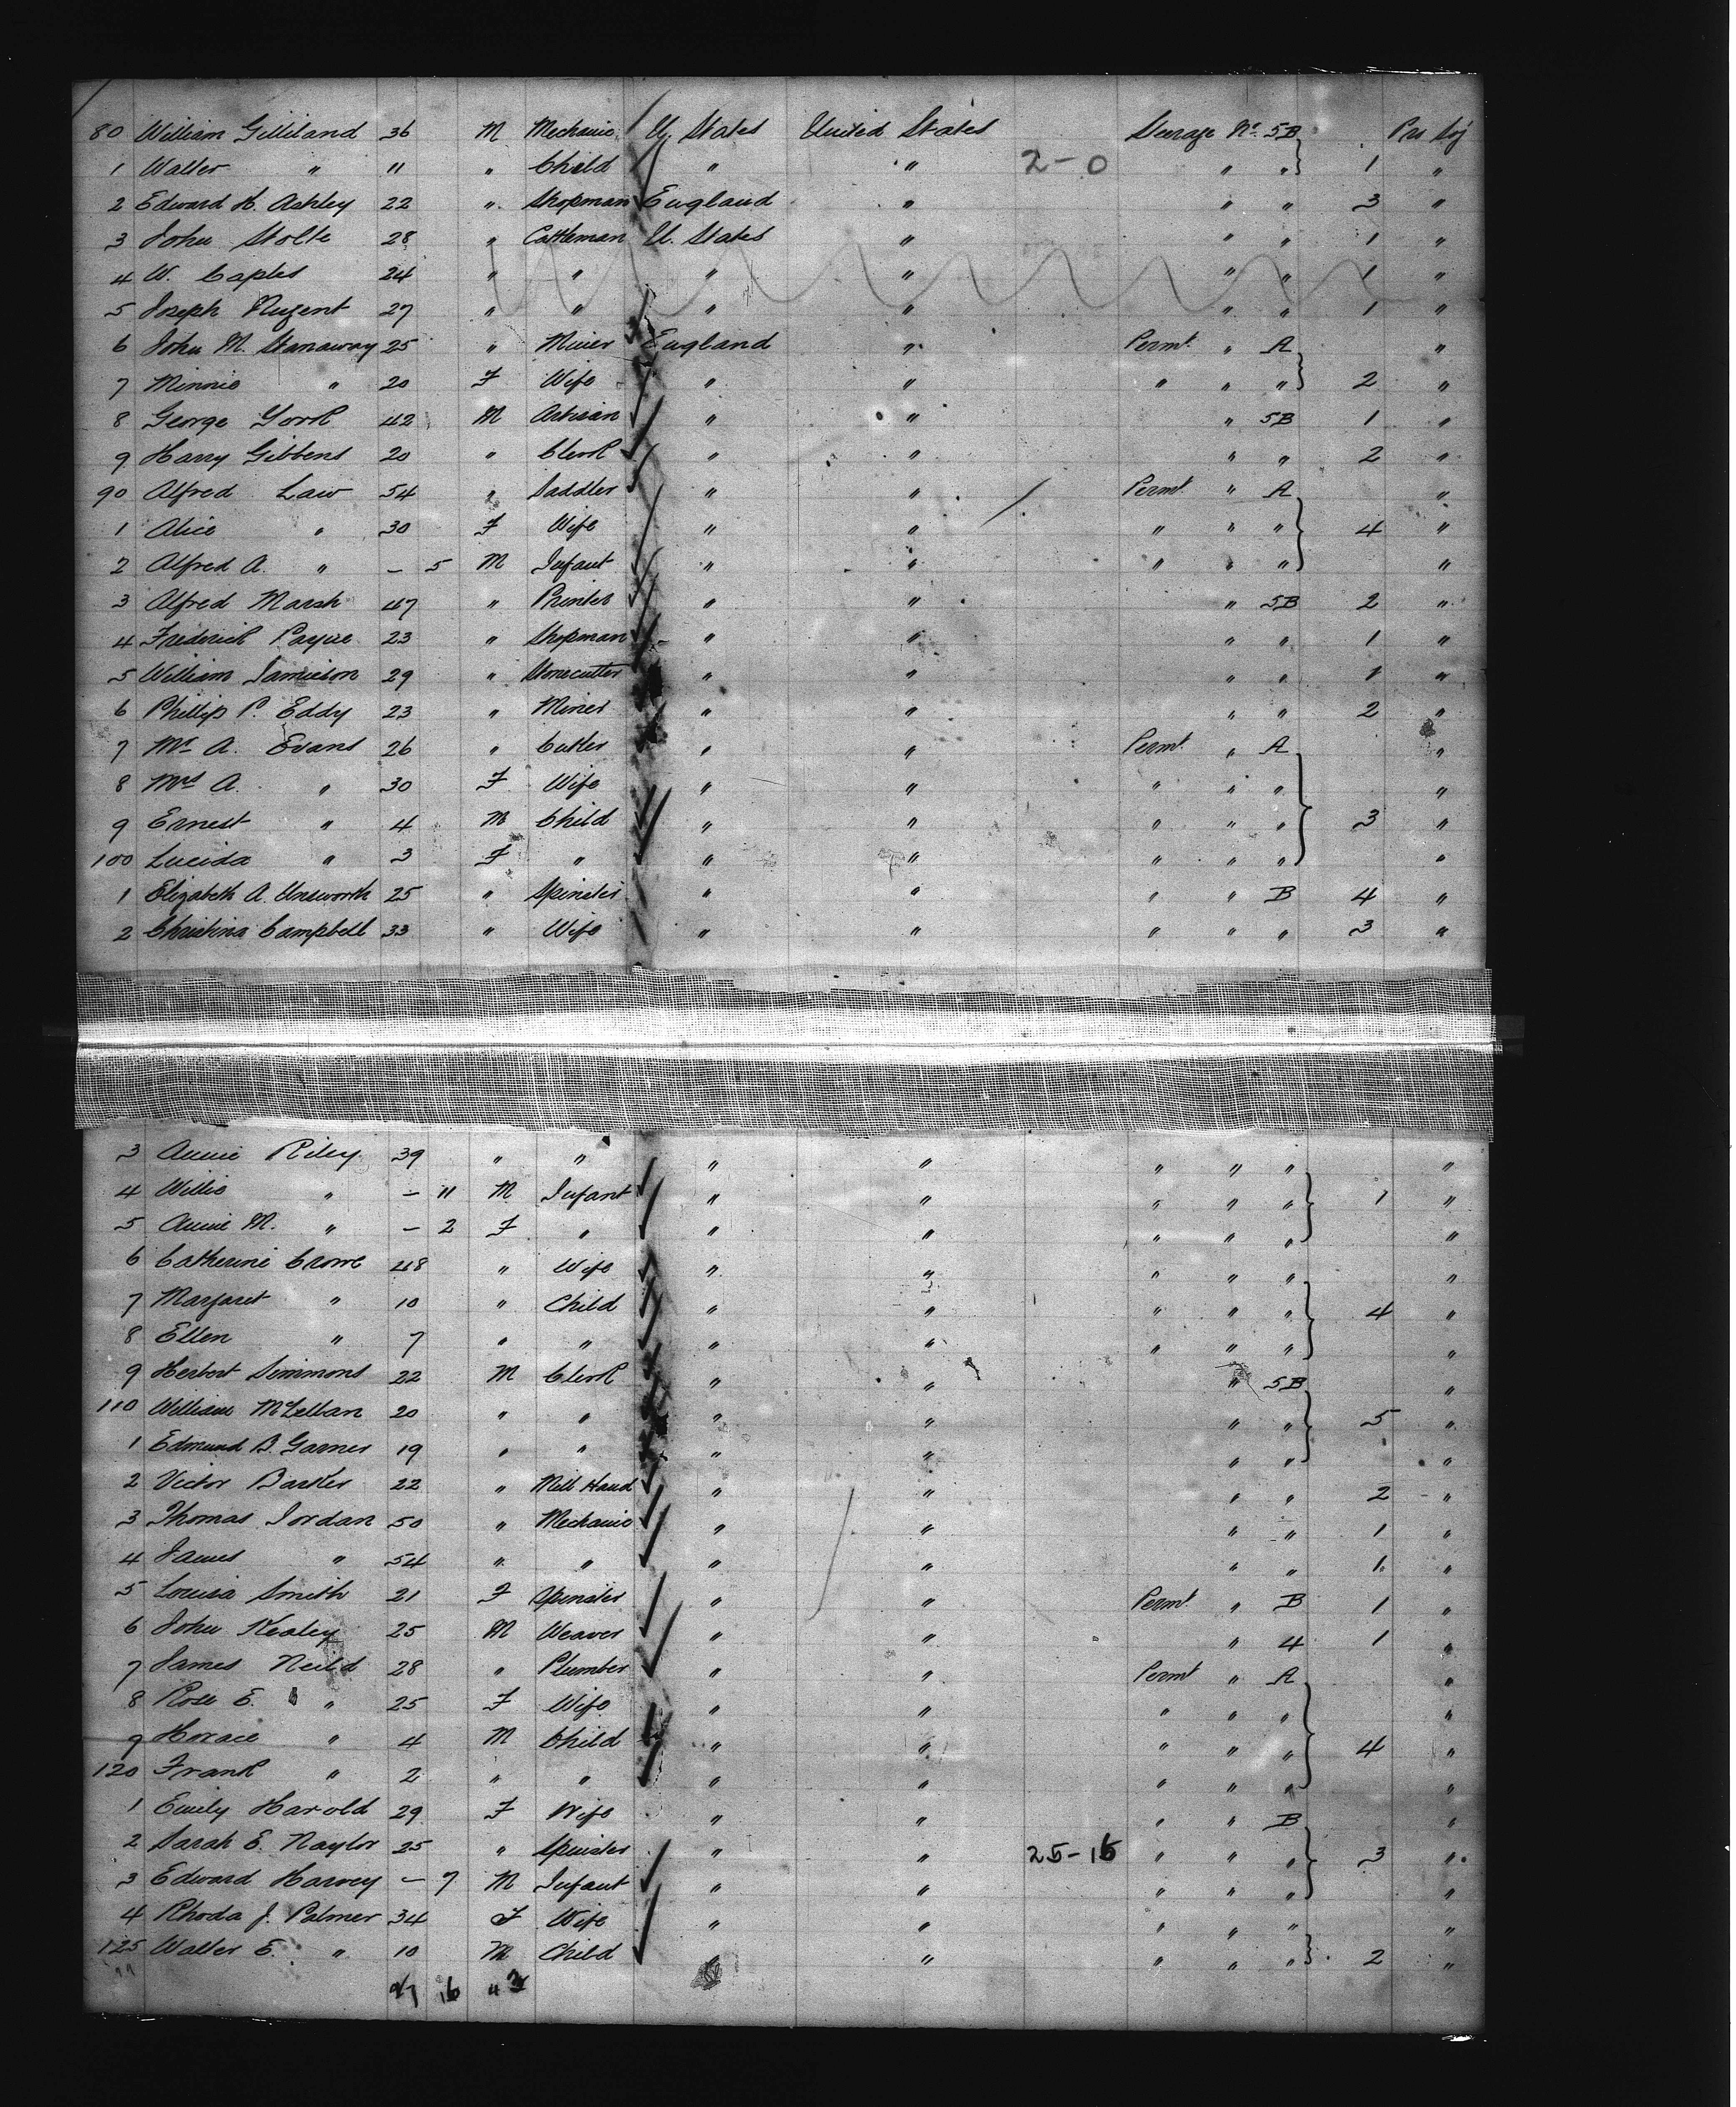 80 William Gilliland 36 M Mechanic U. States United States Steerage No. 5B Pro Soj
1 Walter " 11 " Child " " 2-0 " " 1 "
2 Edward H. Ashley 22 " Shopman England " " " 3 "
3 John Stolte 28 " Cattleman U. States " " " 1 "
4 W. Caples 24 " " " " " " 1 "
5 Joseph Nugent 27 " " " " " " 1 "
6 John M. Stanaway 25 " Miner England " Permt. " A "
7 Minnie " 20 F Wife " " " " " 2 "
8 George York 42 M Artisan " " " 5B 1 "
9 Harry Gibbens 20 " Clerk " " " " 2 "
90 Alfred Law 54 " Saddler " " Permt. " A "
1 Alice " 30 F Wife " " " " " 4 "
2 Alfred A. " - 5 M Infant " " " " " "
3 Alfred Marsh 47 " Printer " " " 5B 2 "
4 Frederick Payne 23 " Shopman " " " " 1 "
5 William Jamieson 29 " Stonecutter " " " " 1 "
6 Phillip P. Eddy 23 " Miner " " " " 2 "
7 Mr. A. Evans 26 " Cutler " " Permt. " A "
8 Mrs A. " 30 F Wife " " " " " "
9 Ernest " 4 M Child " " " " " 3 "
100 Lucida " 3 F " " " " " " "
1 Elizabeth A. Unsworth 25 " Spinster " " " " B 4 "
2 Christina Campbell 33 " Wife " " " " " 3 "
3 Annie Riley 39 " " " " " " " "
4 Willie " - 11 M Infant " " " " " 1 "
5 Annie M. " - 2 F " " " " " " "
6 Catherine Crowe 48 " Wife " " " " " "
7 Margaret " 10 " Child " " " " " 4 "
8 Ellen " 7 " " " " " " " "
9 Herbert Simmons 22 M Clerk " " " 5B "
110 William McLellan 20 " " " " " " 5 "
1 Edmund B. Garner 19 " " " " " " "
2 Victor Barker 22 " Mill Hand " " " " 2 "
3 Thomas Jordan 50 " Mechanic " " " " 1 "
4 James " 54 " " " " " " 1 "
5 Louisa Smith 21 F Spinster " " Permt. " B 1 "
6 John Kealey 25 M Weaver " " " 4 1 "
7 James Neild 28 " Plumber " " Permt " A "
8 Rose E. " 25 F Wife " " " " " "
9 Horace " 4 M Child " " " " " 4 "
120 Frank " 2 " " " " " " " "
1 Emily Harold 29 F Wife " " " " B "
2 Sarah E. Naylor 25 " Spinster " " 25-15 " " " 3 "
3 Edward Harvey - 7 M Infant " " " " " "
4 Rhoda J. Palmer 34 F Wife " " " " " "
125 Walter E. " 10 M Child " " " " " 2 "